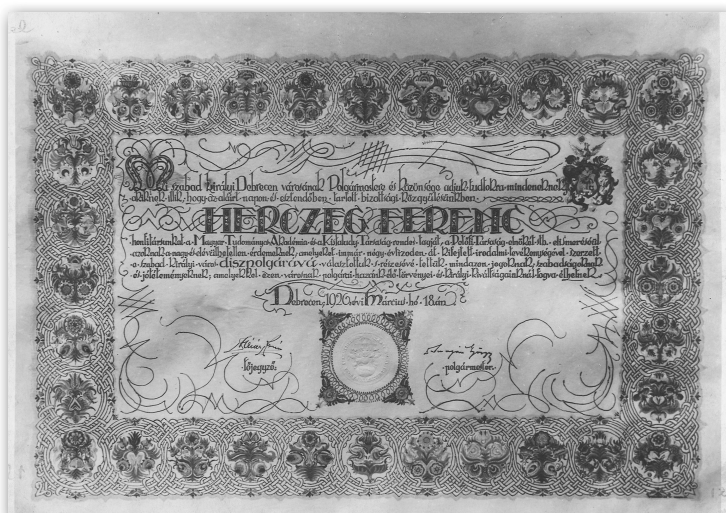 Mi szabad királyi Debrecen városának Polgármestere és Közönsége adjuk tudtára mindeneknek
akiknek illik, hogy az alárt napon és esztendőben tartott bizottsági Közgyűlésünkben
HERCZEG FERENC
honfitársunkat a Magyar Tudományos Akadémia és a Kisfaludy Társaság rendes tagját, a Petőfi Társaság elnökét stb. elismerésül
azoknak a nagy és elévülhetetlen érdemeknek, amelyeket immár négy évtizeden át kifejtett irodalmi tevékenységével szerzett
a szabad királyi város díszpolgárává választottuk s részesévé tettük mindazon jogoknak, szabadságoknak
és jótéteményeknek, amelyekkel ezen városnak polgárai hazánk élő törvényei és királyi kiváltságainknál fogva élhetnek
Debrecen, 1926 évi Március hó 18án
főjegyző.
polgármester.